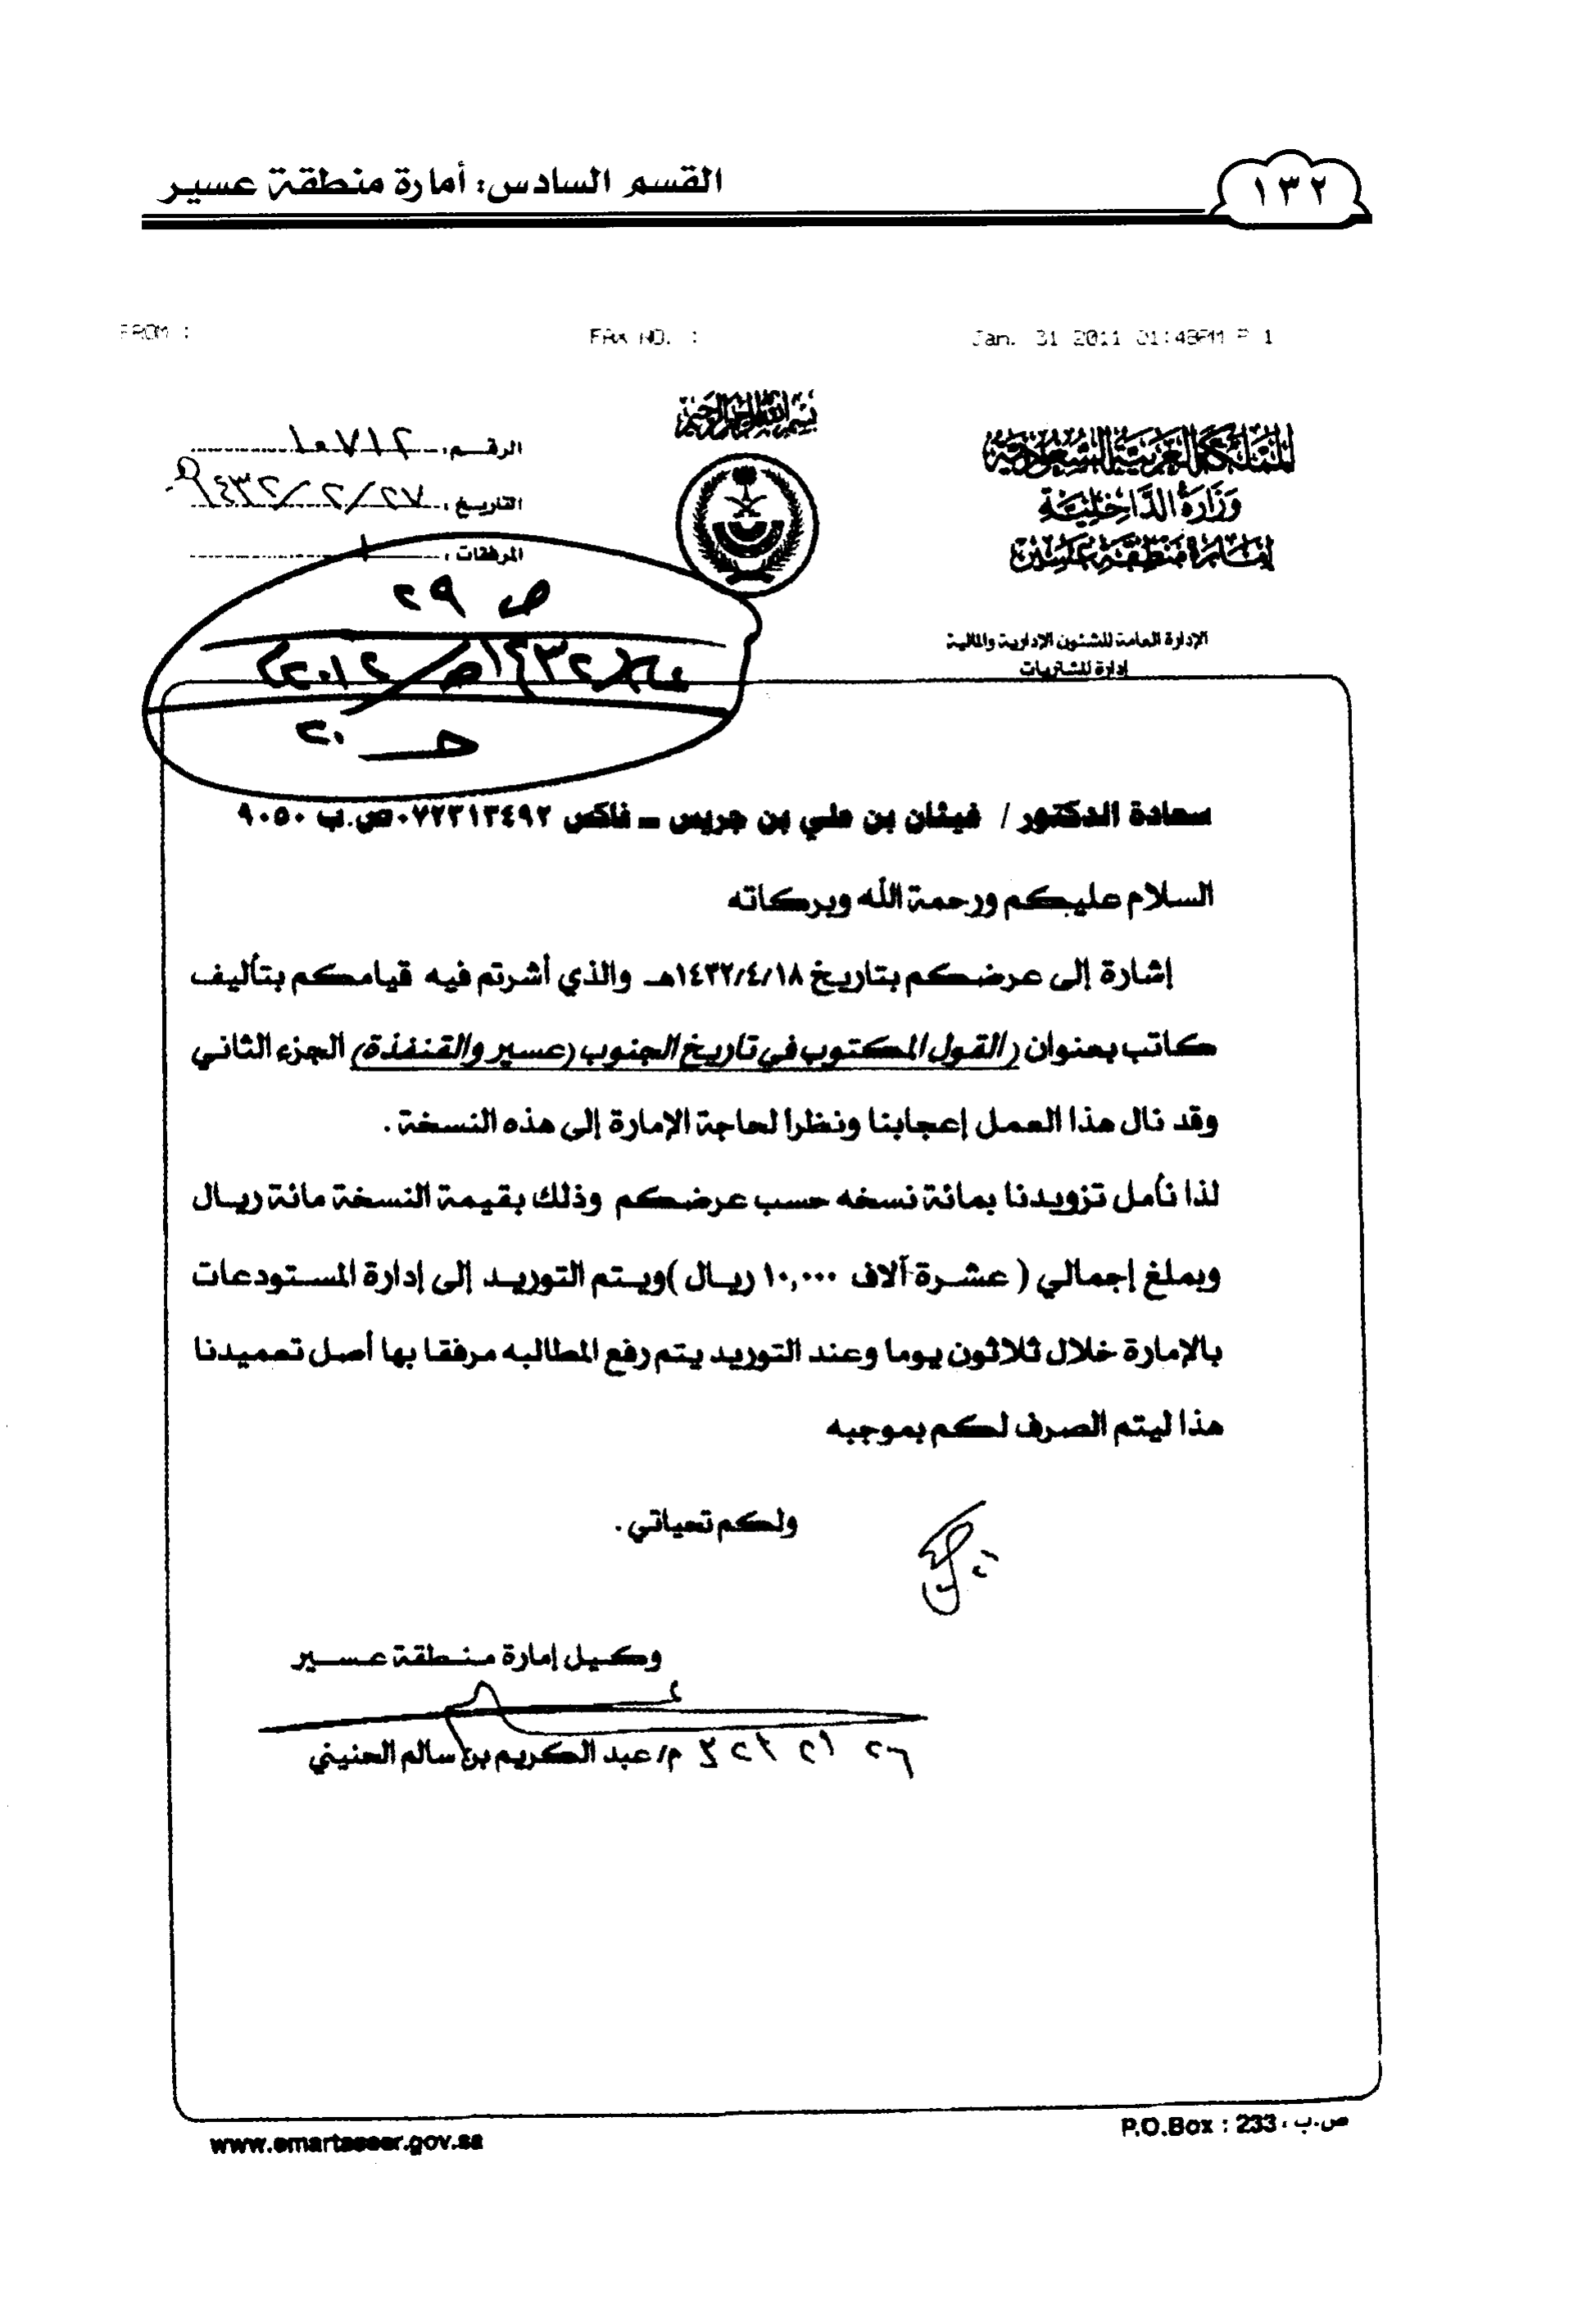 ١٣٢
القسم السادس: أمارة منطقة عسير
FROM :
FAX NO. :
Jan. 31 2011 01:48PM P 1
بسم الله الرحمن الرحيم
المملكة العربية السعودية
وزارة الداخلية
إمارة منطقة عسير
الإدارة العامة للشئون الإدارية والمالية
إدارة المشتريات
الرقـم: ١٠٧١٢
التاريـخ: ٢٧/٢/١٤٣٢هـ
المرفقات: ١
ص ٢٩
١٤٣٢هـ/٢٠١٢
حـ ٢٠
سعادة الدكتور / غيثان بن علي بن جريس ــ فاكس ٠٧٢٣١٣٤٩٢ص.ب ٩٠٥٠
السلام عليكم ورحمة الله وبركاته
إشارة إلى عرضكم بتاريخ ١٤٣٢/٤/١٨هـ والذي أشرتم فيه قيامكم بتأليف
كاتب بعنوان (القول المكتوب في تاريخ الجنوب (عسير والقنفذة) الجزء الثاني
وقد نال هذا العمل إعجابنا ونظرا لحاجة الإمارة إلى هذه النسخة .
لذا نأمل تزويدنا بمائة نسخه حسب عرضكم وذلك بقيمة النسخة مائة ريـال
وبملغ إجمالي ( عشـرة آلاف ١٠,٠٠٠ ريـال )ويـتم التوريـد إلى إدارة المسـتودعات
بالإمارة خلال ثلاثون يوما وعند التوريد يتم رفع المطالبه مرفقا بها أصل تعميدنا
هذا ليتم الصرف لكم بموجبه
ولكم تحياتي .
وكيل إمارة منطقة عسير
م/ عبد الكريم بن سالم الحنيني
www.emartaseer.gov.sa
P.O.Box : 233 ص.ب: